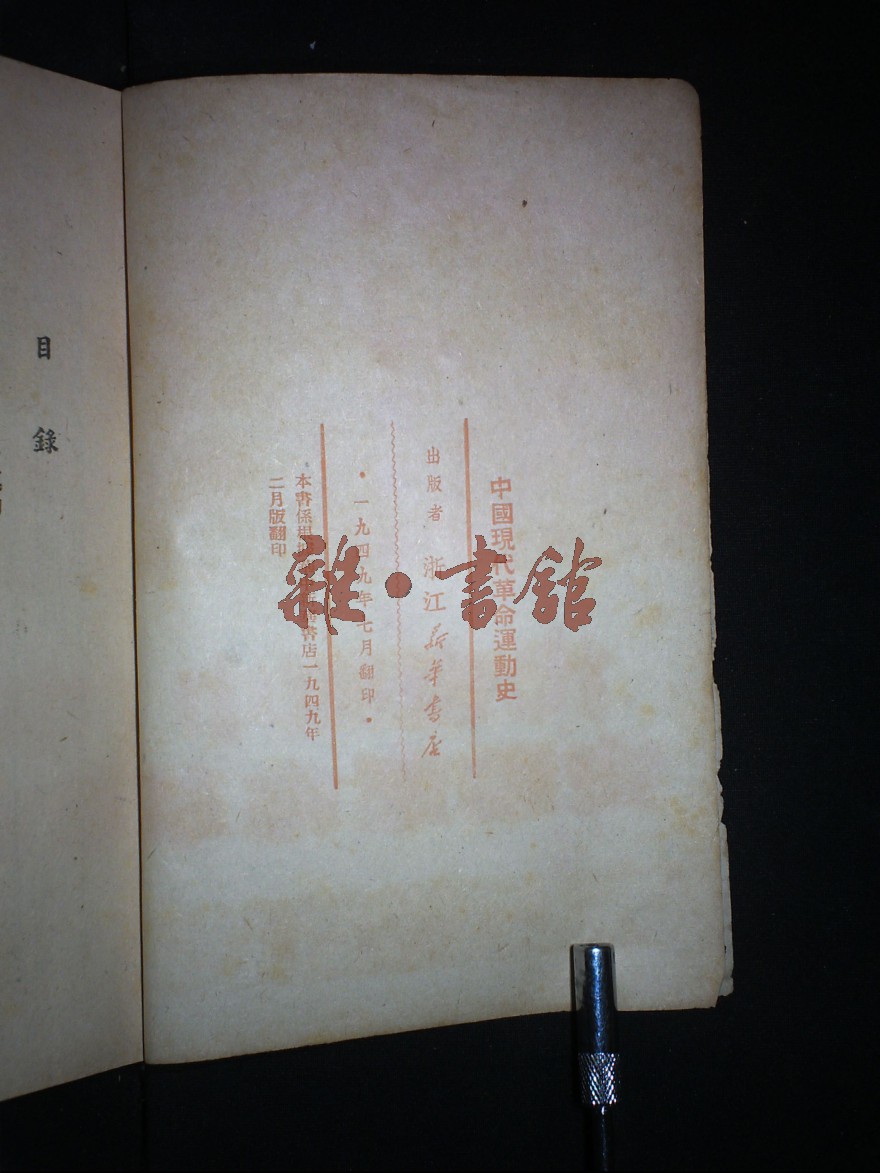 中國現代革命運動史
出版者 浙江新華書店
·一九四九年七月翻印·
本書係根
書店一九四九年
二月版翻印
目錄
雜·書館